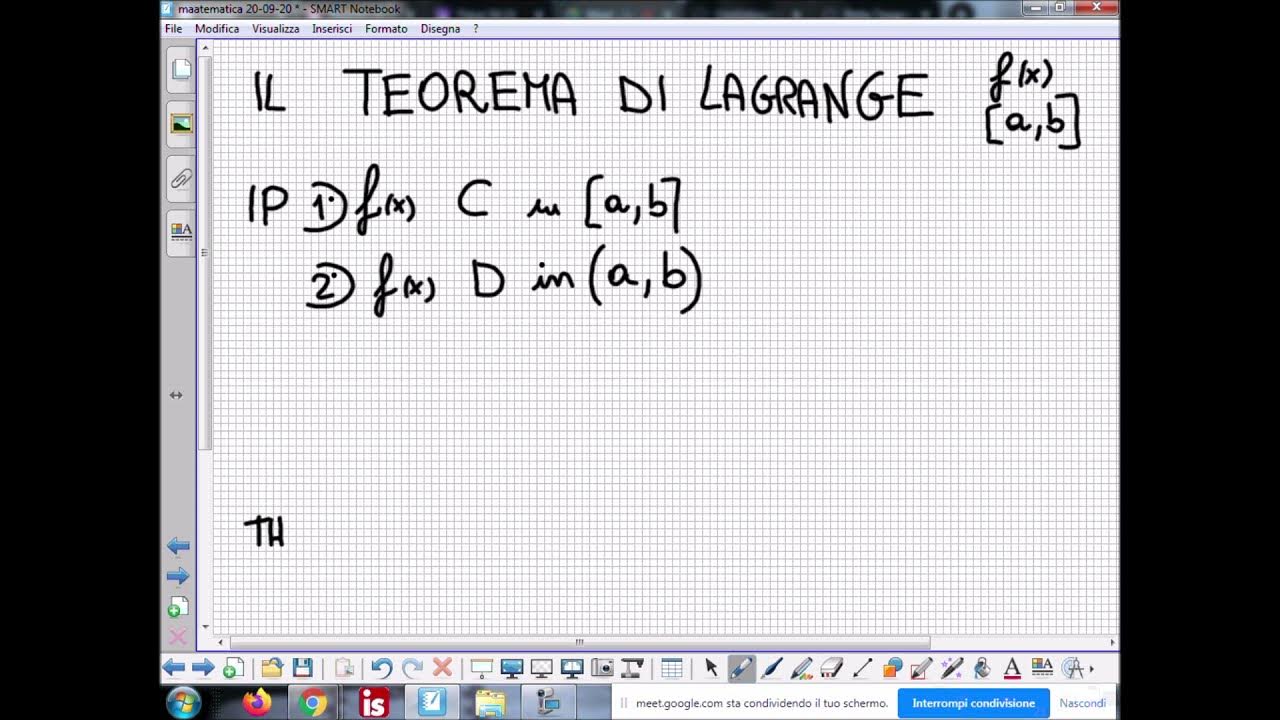 maatematica 20-09-20 * - SMART Notebook
File Modifica Visualizza Inserisci Formato Disegna ?
IL TEOREMA DI LAGRANGE f(x)
[a,b]
IP 1) f(x) C in [a,b]
2) f(x) D in (a,b)
TH
meet.google.com sta condividendo il tuo schermo. Interrompi condivisione Nascondi